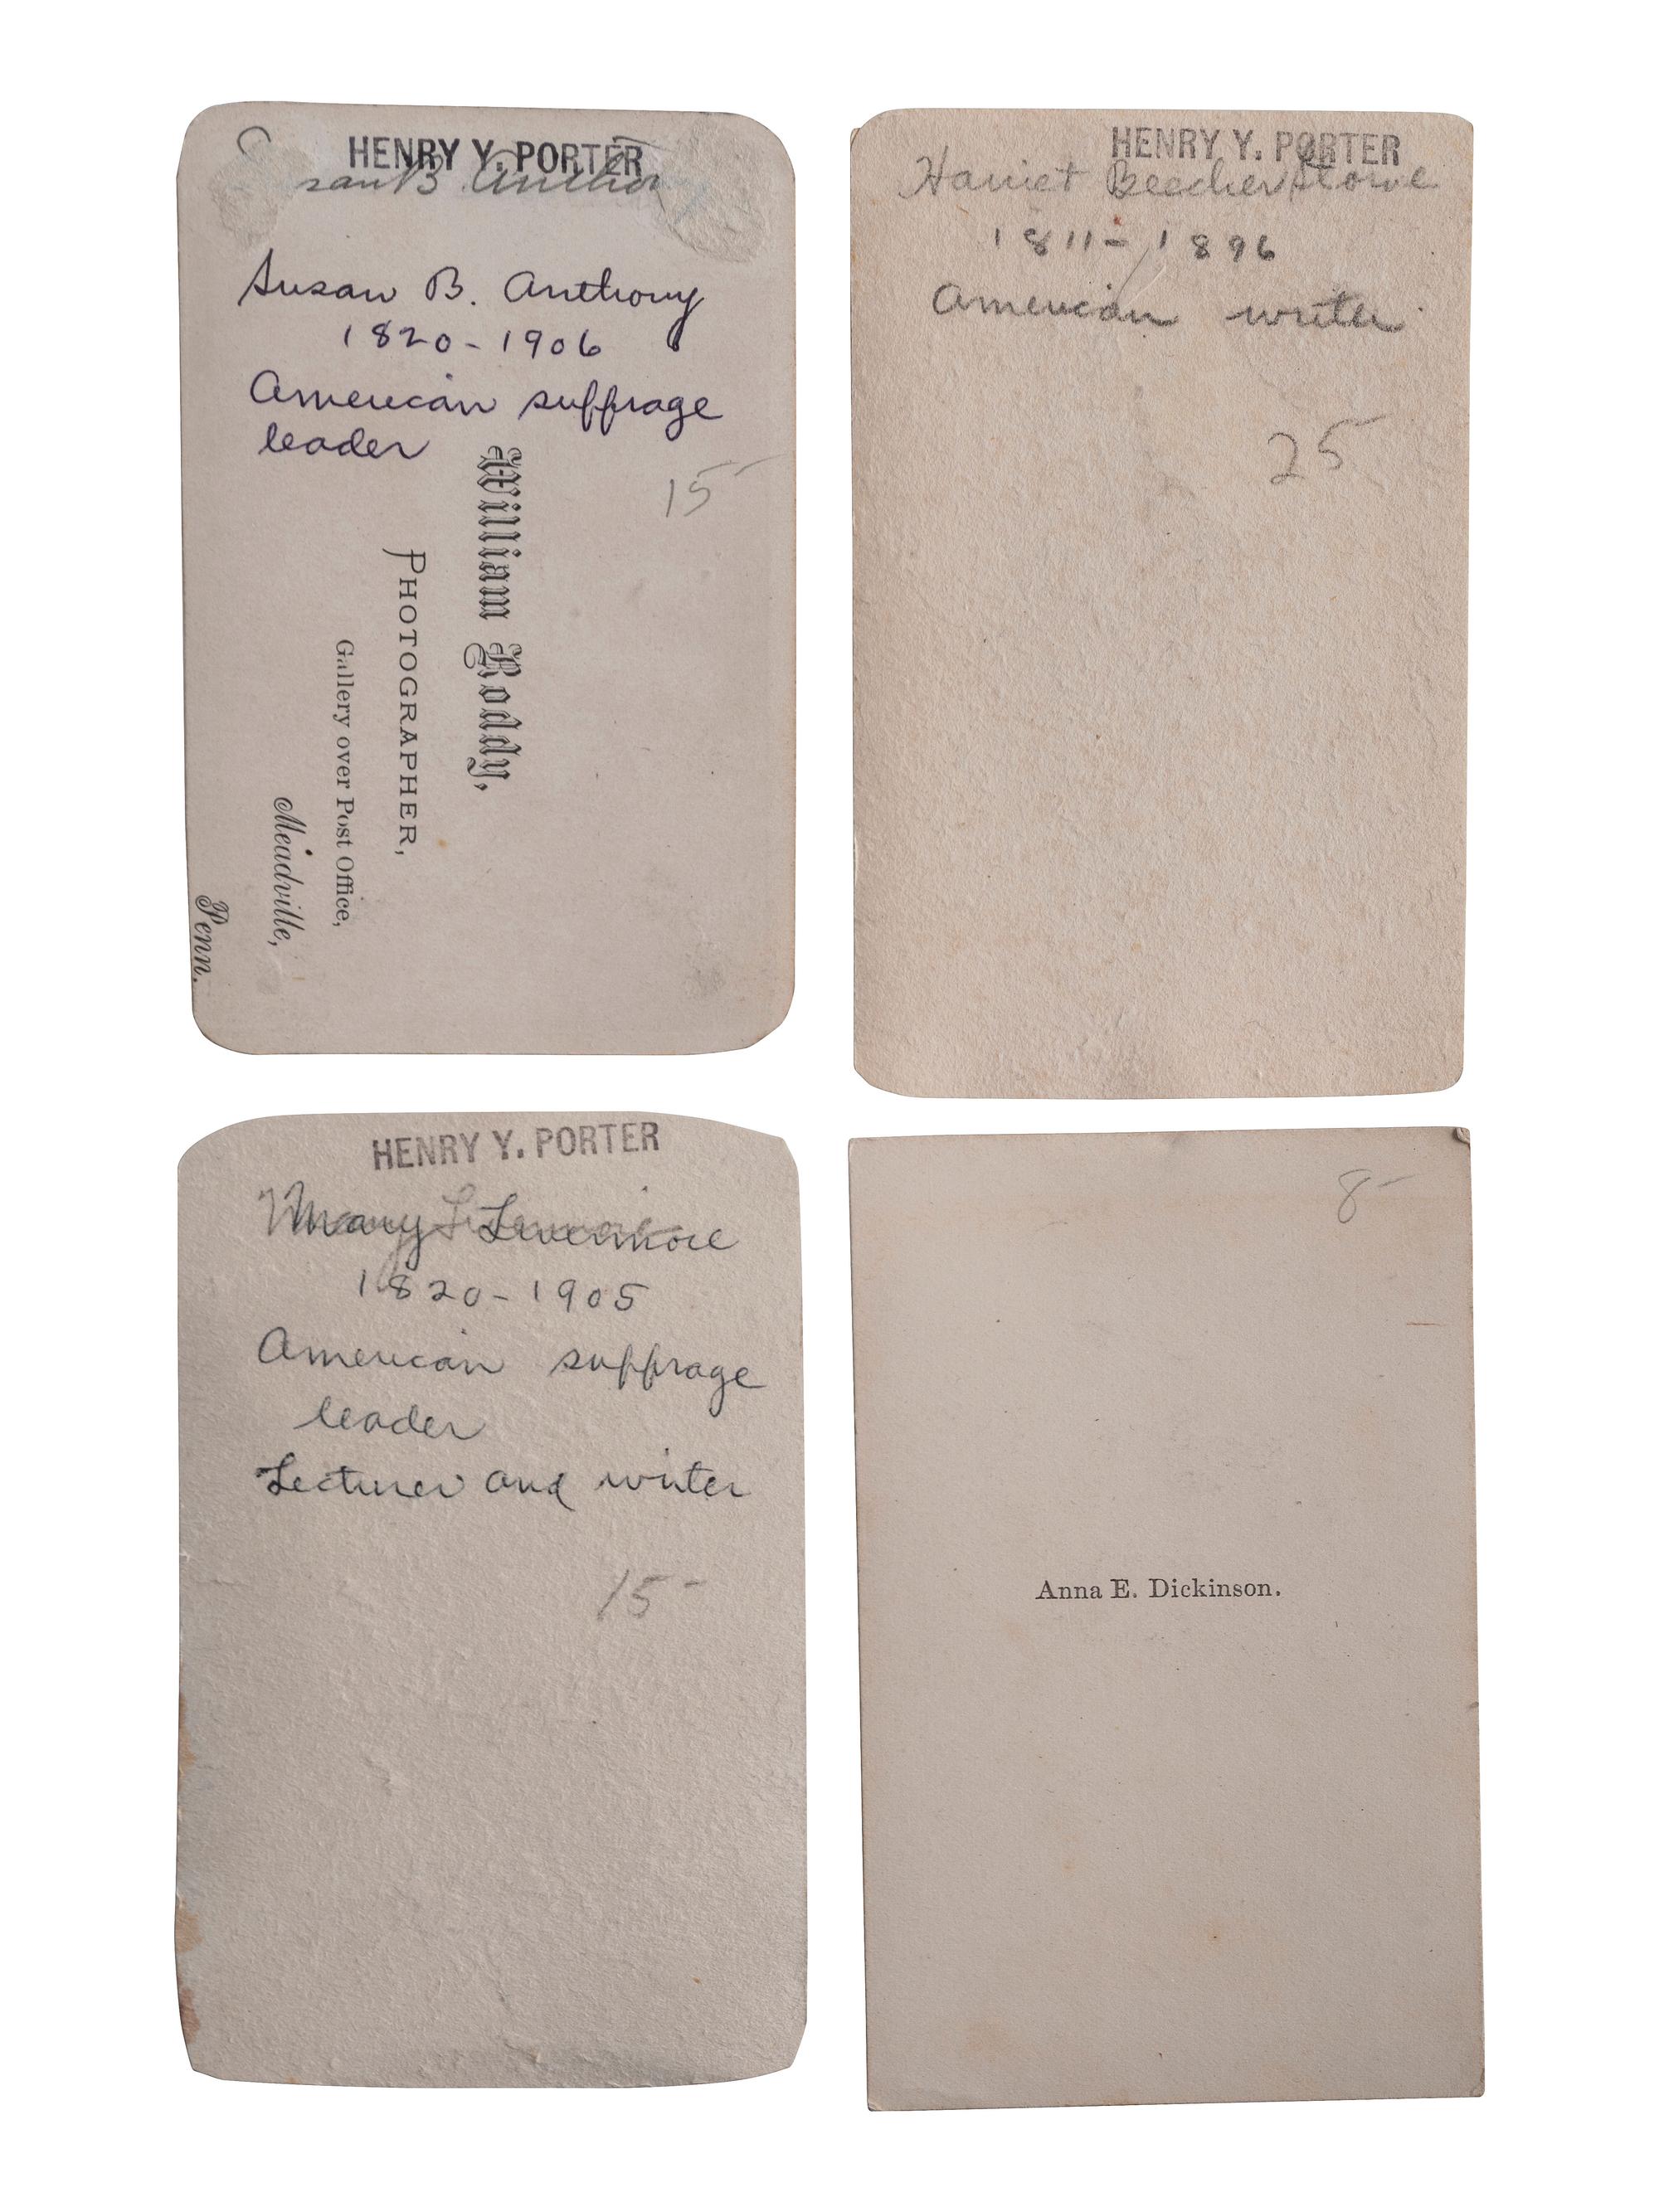 HENRY Y. PORTER
san B. Antho
Susan B. Anthony
1820-1906
American suffrage
leader
15-
William Roddy,
PHOTOGRAPHER,
Gallery over Post Office,
Meadville,
Penn.
HENRY Y. PORTER
Harriet Beecher Stowe
1811-1896
American writer
25-
HENRY Y. PORTER
Mary L Livermore
1820-1905
American suffrage
leader
Lecturer and writer
15-
8-
Anna E. Dickinson.